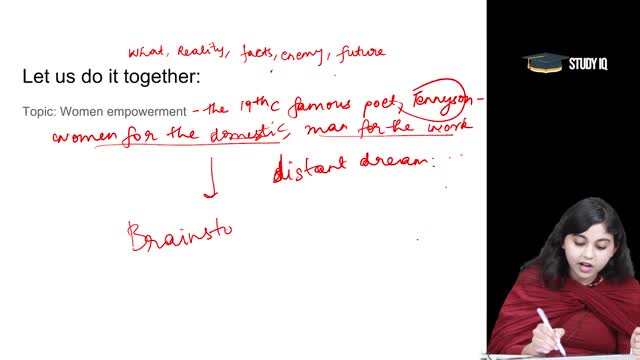 what, Reality, facts, enemy, future
STUDY IQ
Let us do it together:
Topic: Women empowerment - the 19th C famous poet, Tennyson -
women for the domestic, man for the work
distant dream...
Brainsto